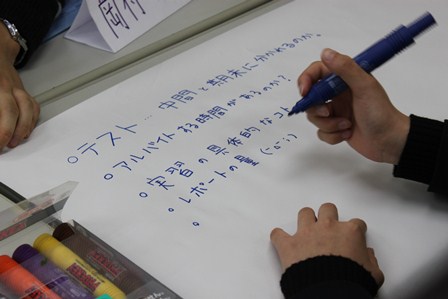 ○テスト… 中間と期末に分かれるのか。
○アルバイトする時間があるのか?
○実習の具体的なこと
○レポートの量 (´o`;)
○